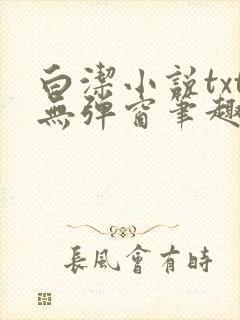 白潔小說txt
無彈窗筆趣
長風會有時